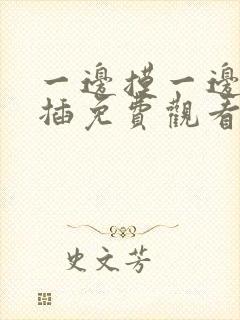 一邊摸一邊
插免費觀看
史文芳